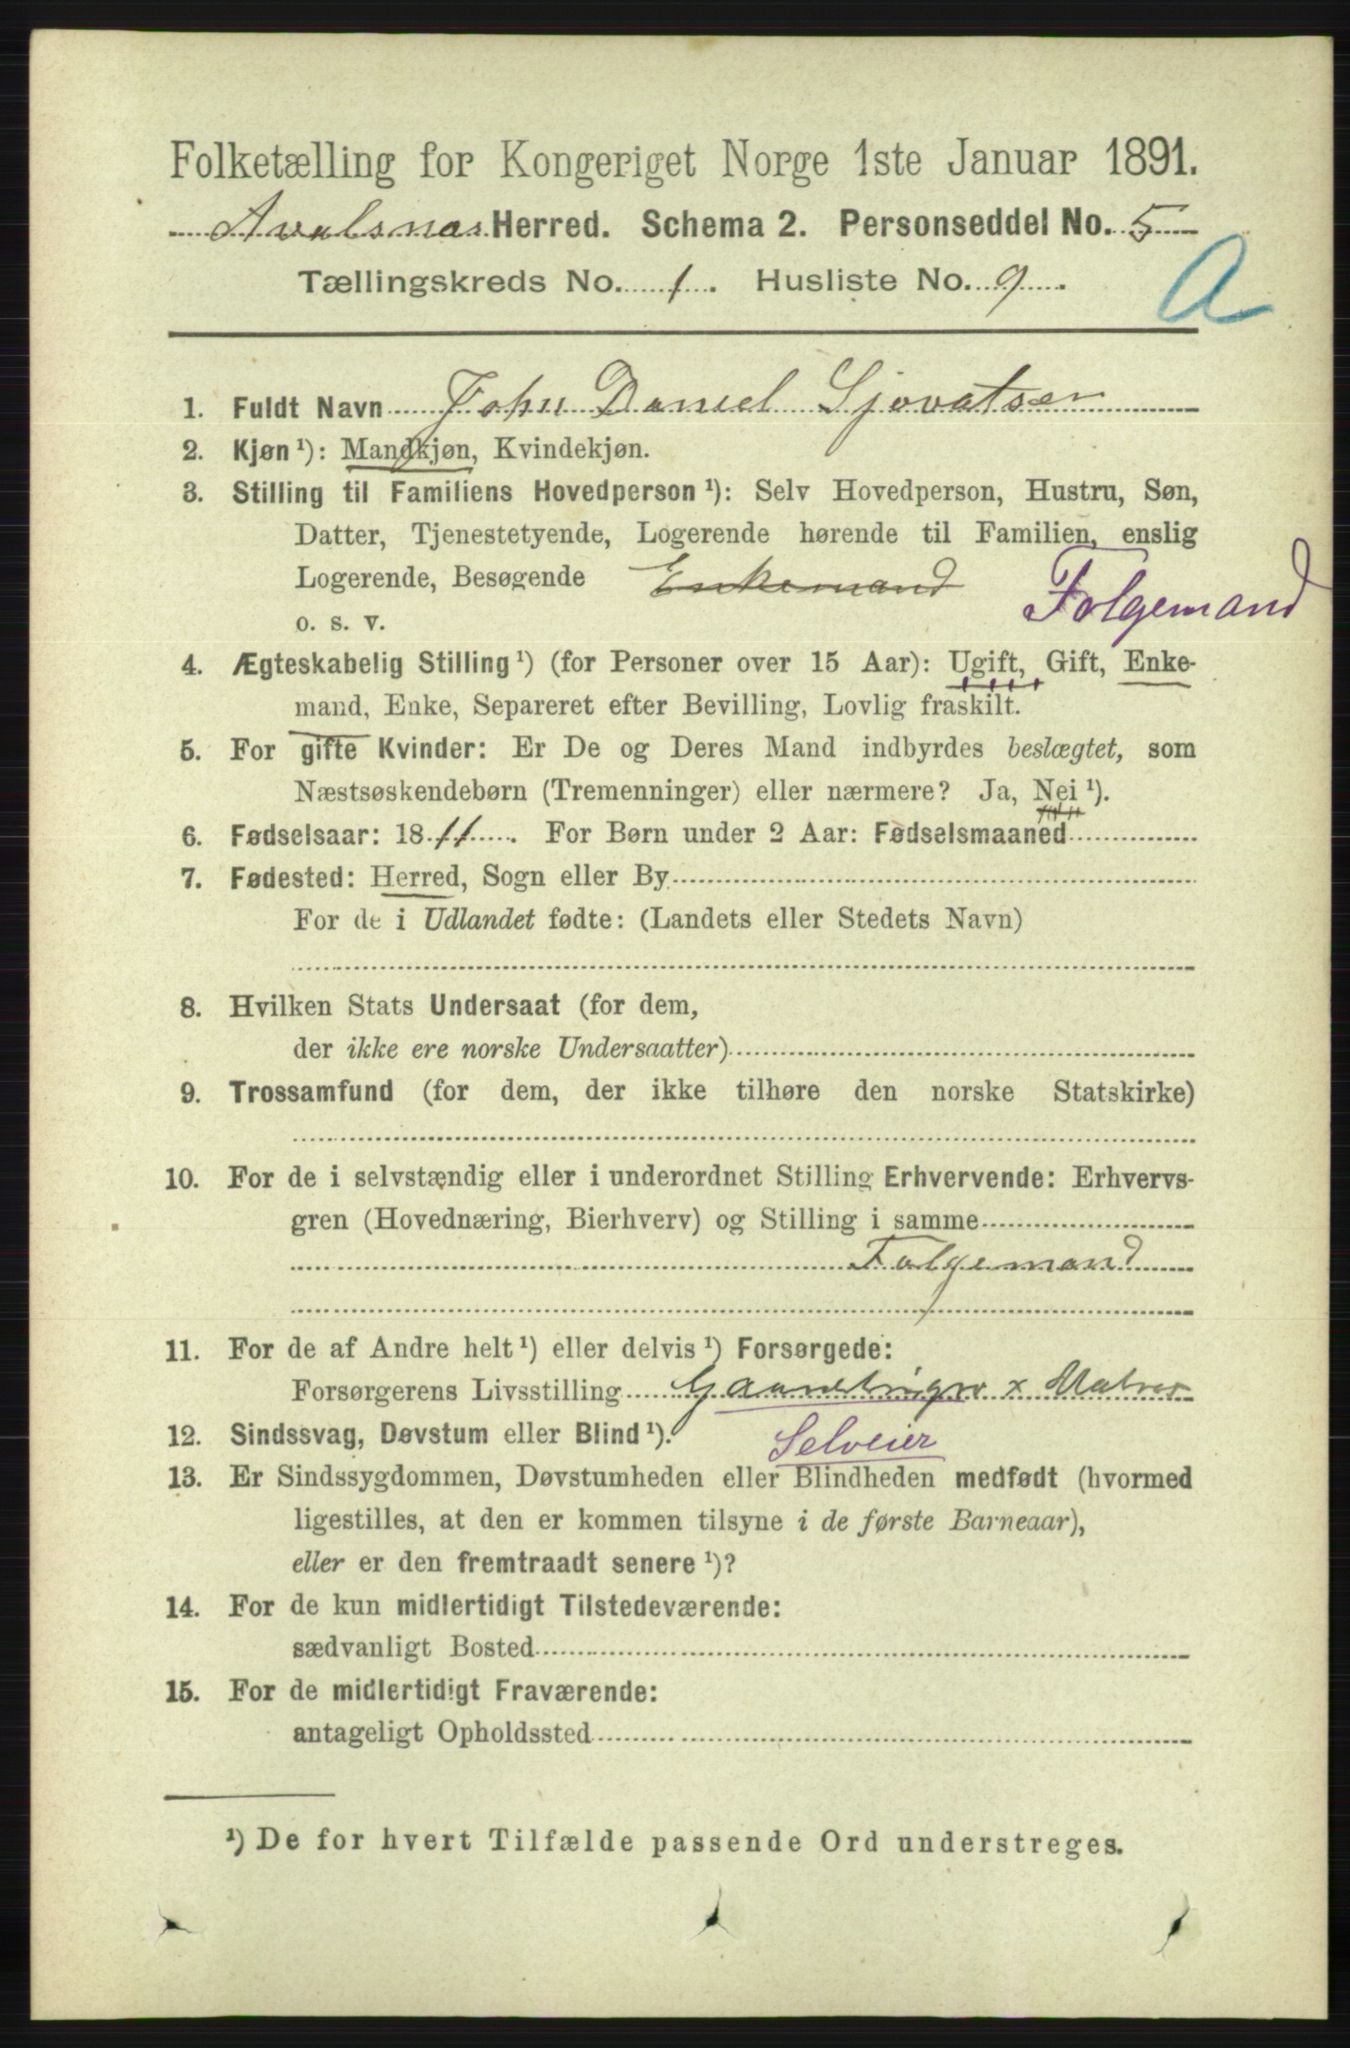 Folketælling for Kongeriget Norge 1ste Januar 1891.
Avalsnæs Herred. Schema 2. Personseddel No. 5
Tællingskreds No. 1. Husliste No. 9.
A
1. Fuldt Navn John Daniel Sjovatsen
2. Kjøn ¹): Mandkjøn, Kvindekjøn.
3. Stilling til Familiens Hovedperson ¹): Selv Hovedperson, Hustru, Søn,
Datter, Tjenestetyende, Logerende hørende til Familien, enslig
Logerende, Besøgende Enkemand Folgemand
o. s. v.
4. Ægteskabelig Stilling ¹) (for Personer over 15 Aar): Ugift, Gift, Enke-
mand, Enke, Separeret efter Bevilling, Lovlig fraskilt.
5. For gifte Kvinder: Er De og Deres Mand indbyrdes beslægtet, som
Næstsøskendebørn (Tremenninger) eller nærmere? Ja, Nei ¹).
6. Fødselsaar: 1811. For Børn under 2 Aar: Fødselsmaaned
7. Fødested: Herred, Sogn eller By
For de i Udlandet fødte: (Landets eller Stedets Navn)
8. Hvilken Stats Undersaat (for dem,
der ikke ere norske Undersaatter)
9. Trossamfund (for dem, der ikke tilhøre den norske Statskirke)
10. For de i selvstændig eller i underordnet Stilling Erhvervende: Erhvervs-
gren (Hovednæring, Bierhverv) og Stilling i samme
Folgemand
11. For de af Andre helt ¹) eller delvis ¹) Forsørgede:
Forsørgerens Livsstilling Gaardbruger x
12. Sindssvag, Døvstum eller Blind ¹). Selveier
13. Er Sindssygdommen, Døvstumheden eller Blindheden medfødt (hvormed
ligestilles, at den er kommen tilsyne i de første Barneaar),
eller er den fremtraadt senere ¹)?
14. For de kun midlertidigt Tilstedeværende:
sædvanligt Bosted
15. For de midlertidigt Fraværende:
antageligt Opholdssted
¹) De for hvert Tilfælde passende Ord understreges.